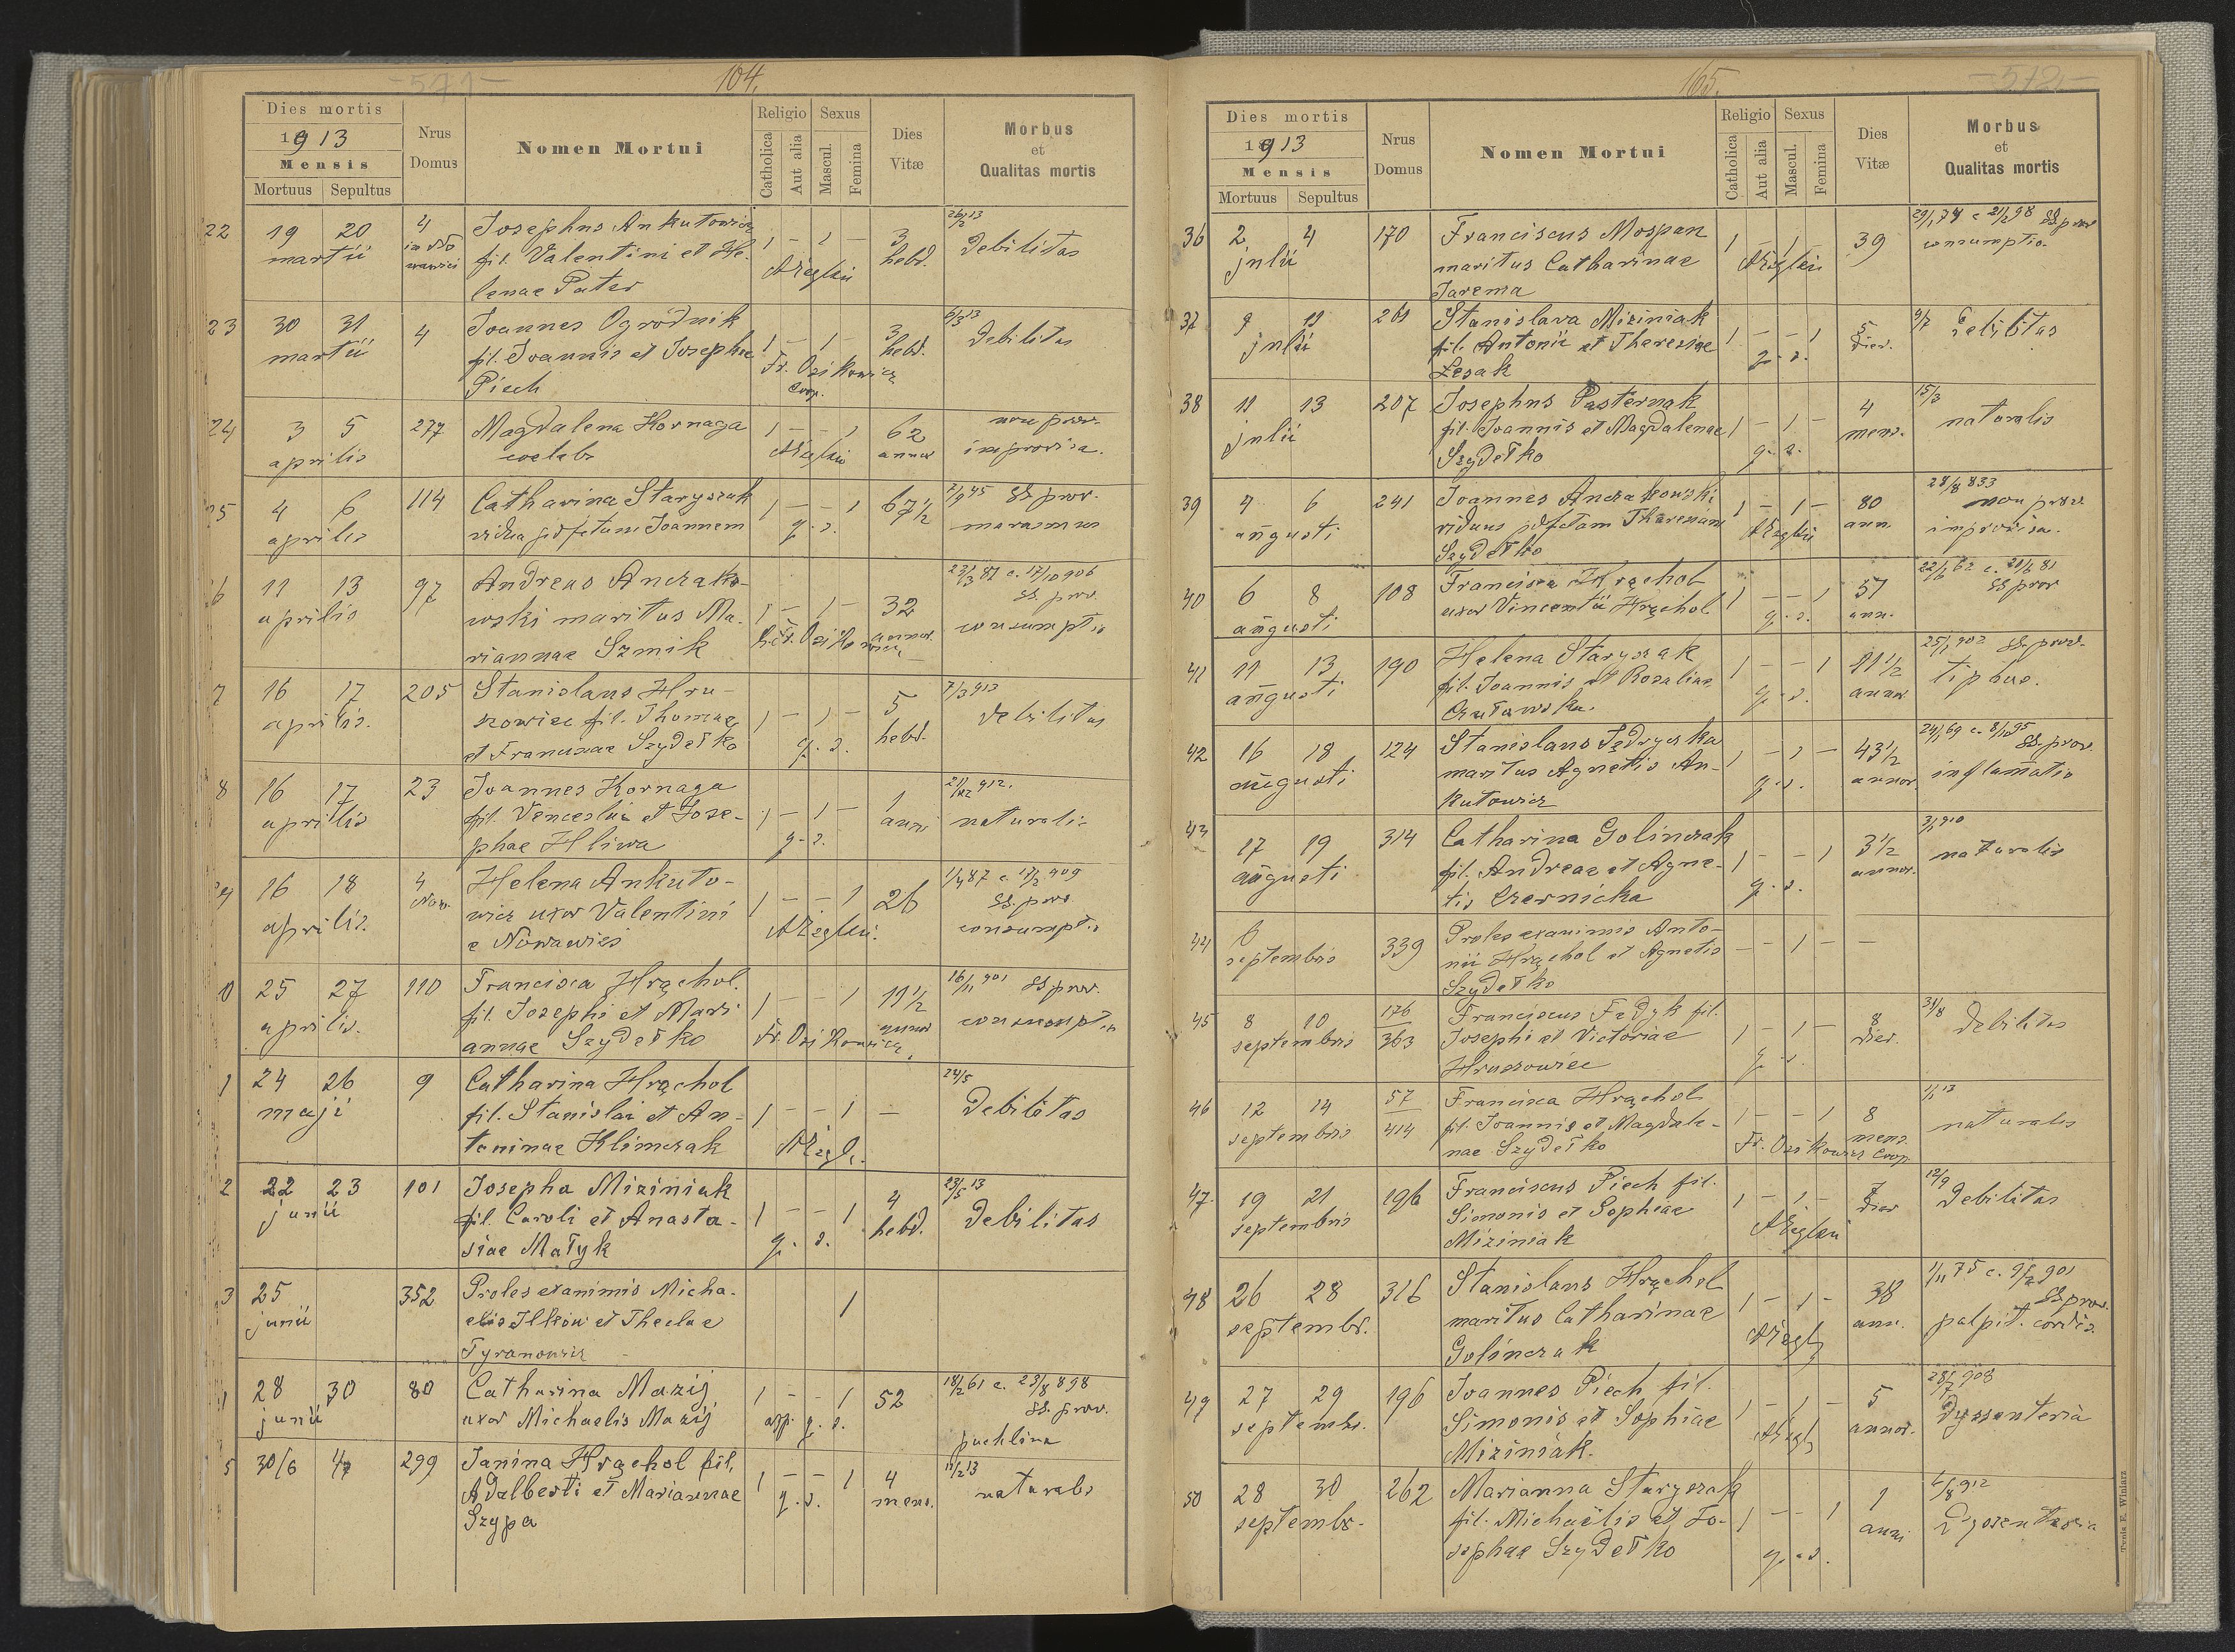 -571-
104.
Dies mortis
1913
Mensis
Mortuus Sepultus
Nrus Domus
Nomen Mortui
Religio
Catholica
Aut alia
Sexus
Mascul.
Femina
Dies Vitæ
Morbus et Qualitas mortis
22 19 20 4 Josephus Ankutowicz 1 - 1 - 3 26/2 13
martii fil. Valentini et He- hebd. Debilitas
lenae Pater
23 30 31 4 Joannes Ogródnik 1 - 1 - 3 6/3 13
martii fil. Joannis et Josephae hebd. Debilitas
Piech Fr. Osikowicz
coop.
24 3 5 277 Magdalena Kornaga 1 - - 1 62 non prov.
aprilis coelebs annor improvisa.
25 4 6 114 Catharina Staryszak 1 - - 1 67 1/2 2/9 45 SS. prov.
aprilis vidua post fatum Joannem q. s. marasmus
26 11 13 97 Andreas Anczako- 1 - 1 - 32 23/3 81 c. 17/10 906
aprilis wski maritus Ma- annor. SS. prov.
riannae Szmik Fr. Osikowicz consumptio
7 16 17 205 Stanislaus Hru- 1 - 1 - 5 7/3 913
aprilis. szowiec fil. Thomae hebd. Debilitas
et Franciscae Szydełko q. s.
8 16 17 23 Joannes Kornaga 1 - 1 - 1 2/12 912.
aprilis fil. Venceslai et Jose- anni naturalis
phae Hliwa q. s.
29 16 18 4 Helena Ankuto- 1 - - 1 26 1/4 87 c. 17/2 909
aprilis. Now. wicz uxor Valentini SS. prov.
e Nowawies consumptio
0 25 27 110 Francisca Hrąchol. 1 - - 1 11 1/2 16/11 901 SS prov.
aprilis. fil. Josephi et Mari- annor consumptio
annae Szydełko Fr. Osikowicz
1 24 26 9 Catharina Hrąchol 1 - - 1 - 24/5
maji fil. Stanislai et An- Debilitas
toninae Klimczak
2 22 23 101 Josepha Miziniak 1 - - 1 4 23/5 13
junii fil. Caroli et Anasta- hebd. Debilitas
siae Małyk q. s.
3 25 352 Proles exanimis Micha- 1
junii elis Ilkow et Theclae
Tyranowicz
1 28 30 80 Catharina Mazij 1 - - 1 52 18/2 61 c. 23/8 898
junii uxor Michaelis Mazij app. q. s. SS. prov.
puchlina
5 30/6 4/7 299 Janina Hrąchol fil. 1 - - 1 4 11/2 13
Adalberti et Mariannae q. s. mens. naturalis
Szypa
165.
-572-
Dies mortis
1913
Mensis
Mortuus Sepultus
Nrus Domus
Nomen Mortui
Religio
Catholica
Aut alia
Sexus
Mascul.
Femina
Dies Vitæ
Morbus et Qualitas mortis
36 2 4 170 Franciscus Mospan 1 1 - 39 29/1 74 c 21/2 98 SS prov
julii maritus Catharinae consumptio
Jarema
37 9 11 261 Stanislava Miziniak 1 - - 1 5 9/7 Debilitas
julii fil. Antonii et Theresiae q. s. dier.
Łesak
38 11 13 207 Josephus Pasternak 1 - 1 - 4 15/3
julii fil. Joannis et Magdalenae mens. naturalis
Szydełko q. s.
39 4 6 241 Joannes Anczakowski 1 - 1 - 80 28/8 833
augusti viduus Theresiam ann. non prov.
Szydełko improvisa.
40 6 8 108 Francisca Hrąchol 1 - - 1 51 22/6 62 c. 81
augusti uxor Vincentii Hrąchol q. s. ann. SS prov
41 11 13 190 Helena Staryszak 1 - - 1 11 1/2 25/1 902 SS. prov.
augusti fil. Joannis et Rosaliae q. s. annor tiphus.
42 16 18 124 Stanislaus Fędryszka 1 - 1 - 43 1/2 24/1 69 c. 8/10 95
augusti maritus Agnetis An- annor SS. prov.
kutowicz q. s. inflamatio
43 17 19 314 Catharina Golinczak 1 - - 1 3 1/2 3/1 910
augusti fil. Andreae et Agne- annor. naturalis
tis Czernicka q. s.
44 6 339 Proles exanimis Anto- - - 1 - -
septembris nii Hrąchol et Agnetis
Szydełko
45 8 10 176/363 Franciscus Fedyk fil. 1 - 1 - 8 31/8
septembris Josephi et Victoriae dier. Debilitas
Hruszowiec q. s.
46 12 14 57/414 Francisca Hrąchol 1 - - 1 8 1/1 13
septembris fil. Joannis et Magdale- mens. naturalis
nae Szydełko Fr. Osikowicz coop.
47. 19 21 196 Franciscus Piech fil. 1 - 1 - 7 12/9
septembris Simonis et Sophiae dier Debilitas
Miziniak
48 26 28 316 Stanislaus Hrąchol 1 - 1 - 38 1/11 75 c. 9/2 901
septembr. maritus Catharinae ann. SS prov.
Golinczak palpit. cordis
49 27 29 196 Joannes Piech fil. 1 - 1 - 5 28/7 908
septembr. Simonis et Sophiae annor. Dyssenteria
Miziniak.
50 28 30 262 Marianna Staryszak 1 - - 1 1 4/8 912
septembr. fil. Michaelis et Jo- anni Dysenteria
sephae Szydełko q. s.
Typis E. Winiarz